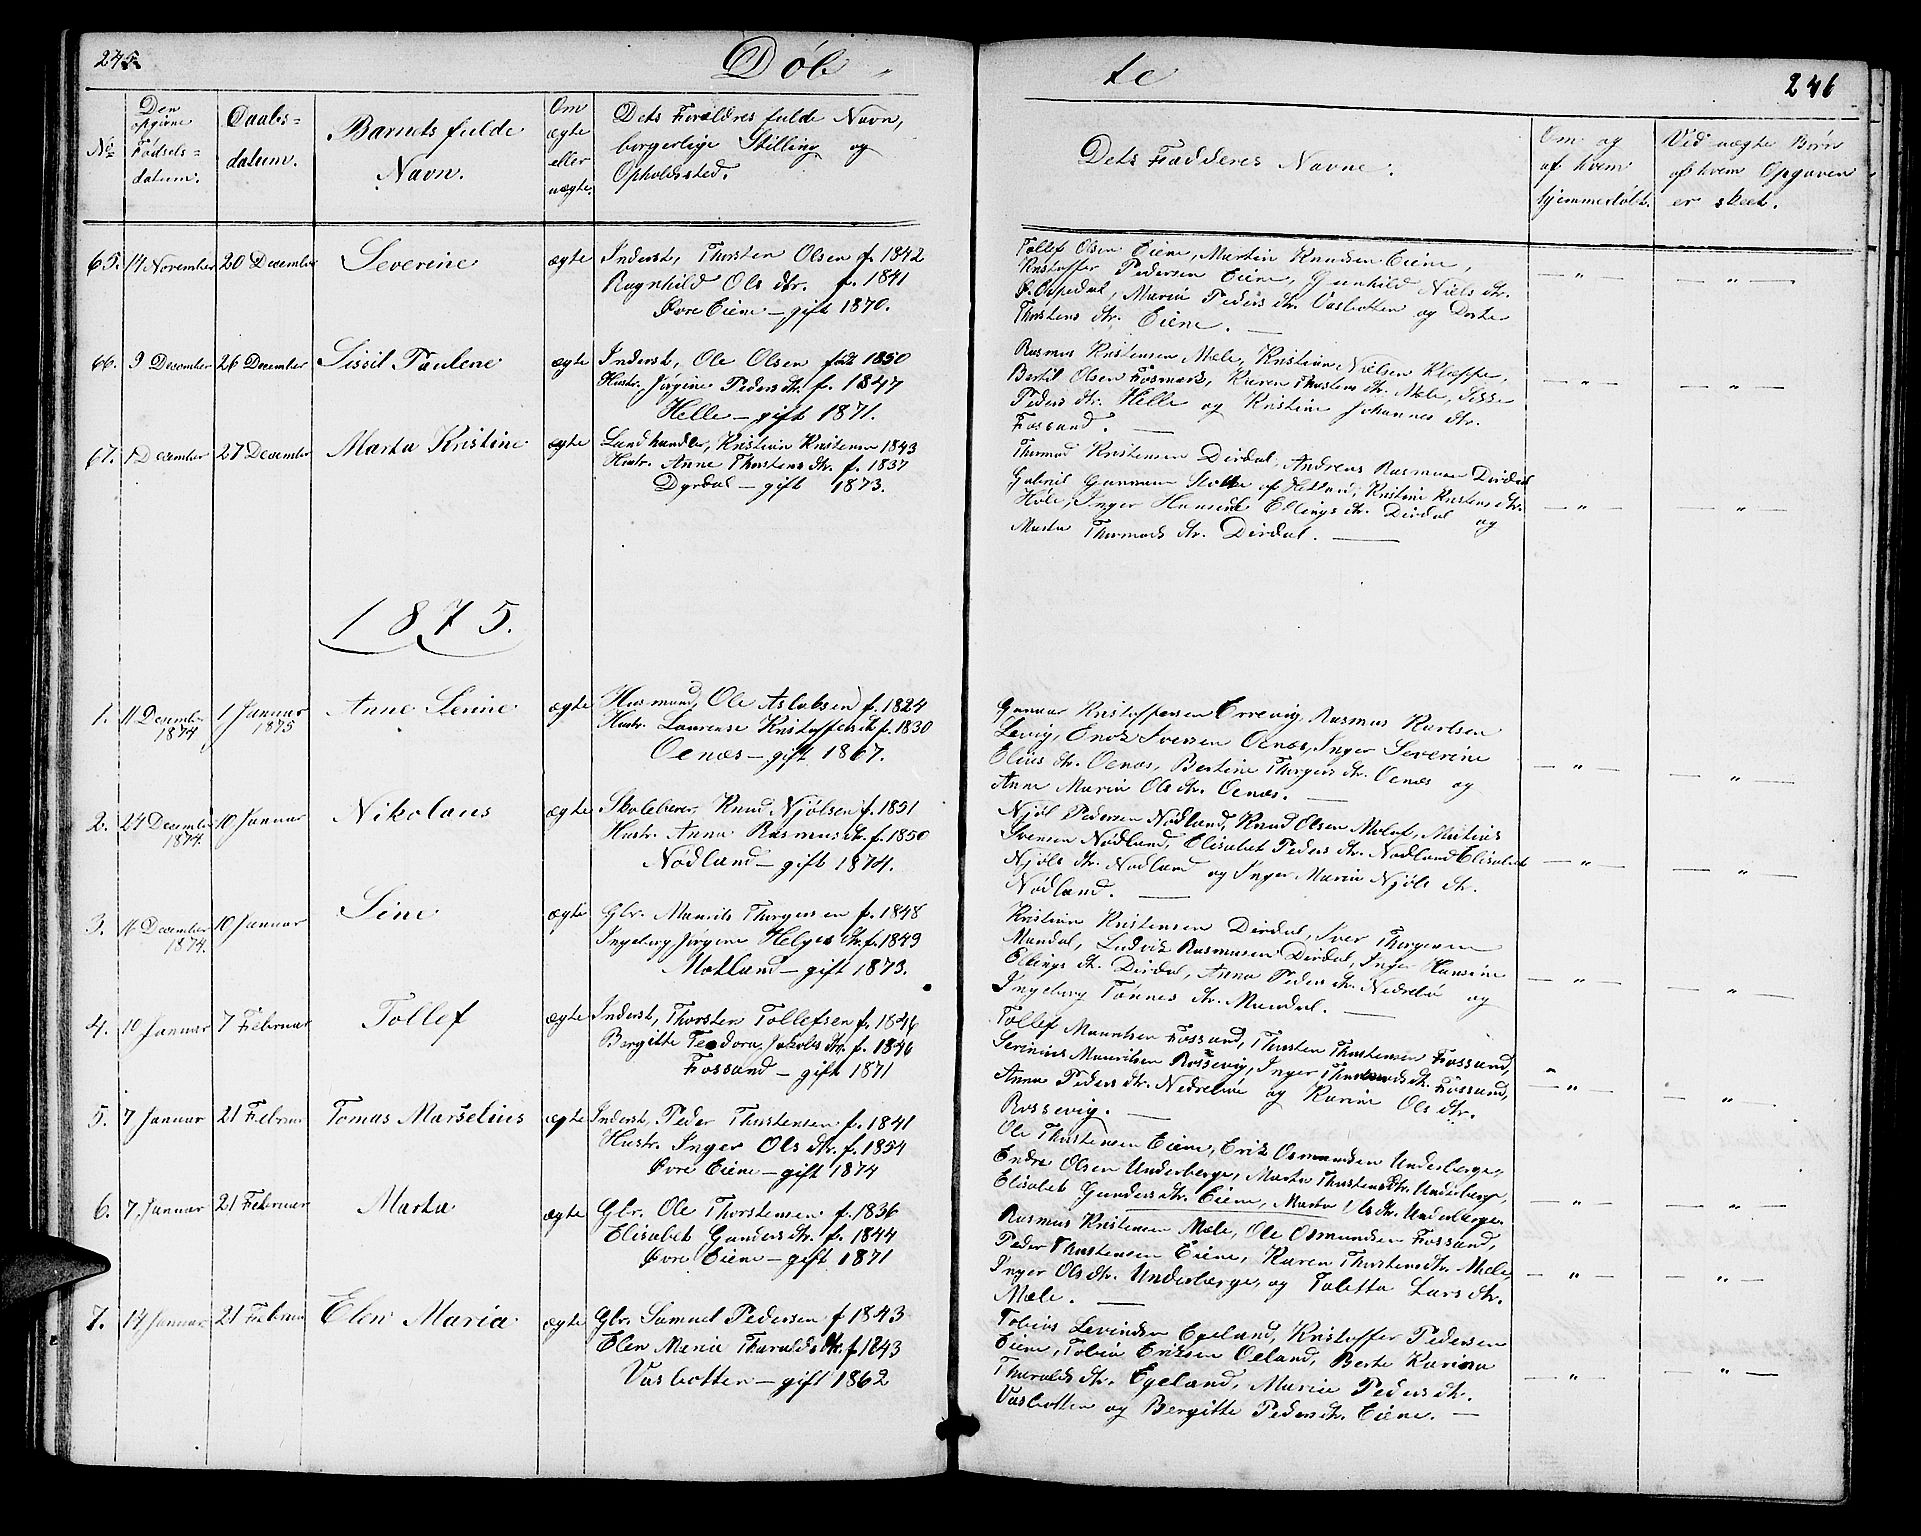 245
Døb-
te
246
No
Den opgivne Fødsels-datum.
Daabs-datum.
Barnets fulde Navn.
Om ægte eller uægte.
Dets Forældres fulde Navn, borgerlige Stilling og Opholdssted.
Dets Fadderes Navne.
Om og af hvem hjemmedøbt.
Vid uægte Børn af hvem Opgaven er skeet.
65. 14 November 20 December Severine ægte Inderst, Thorsten Olsen f. 1842
Ragnhild Ols dtr. f. 1841
Øvre Eiene – gift 1870.
Tollef Olsen Eiene, Martin Knudsen Eiene,
Kristoffer Pedersen Eiene, Gunhild Niels dtr.
Ø. Espedal, Maria Peders dtr. Vasbotten og Dorte
Thorstens dtr. Eiene. —
— " — — " —
66. 9 Desember 26 December Sissil Paulene ægte Inderst, Ole Olsen født 1850
Hustr. Jørgine Peders dtr. f. 1847
Helle – gift 1871.
Rasmus Kristensen Mæle, Kristian Nielsen Kleppe,
Bertil Olsen Fosmark, Karen Thorstens dtr. Mæle, Sissil
Peders dtr. Helle og Kristine Johannes dtr.
Fossand. —
— " — — " —
67. 1 December 27 December Marta Kristine ægte Landhandler, Kristian Kristensen 1843
Hustr. Anne Thorstens dtr. f. 1837
Dyrdal – gift 1873.
Thormod Kristensen Dirdal, Andreas Rasmusen Dirdal
Gabriel Gunnarsen af Helland, Kristine Kristens dtr.
Høle, Inger Hansine Ellings dtr. Dirdal og
Marta Thormods dtr. Dirdal. —
— " — "
1875.
1. 11 Desember 1874 1 Januar 1875 Anne Serine ægte Husmand, Ole Aslaksen f. 1824
Hustr. Laurense Kristoffers dtr f. 1830
Oenæs – gift 1867.
Gunnar Kristoffersen Errevig, Rasmus Karlsen
Levig, Enok Svensen Oenæs, Inger Severine
Elias dtr. Oenæs, Bertine Thorgers dtr. Oenæs og
Anne Maria Ols dtr. Oenæs. —
— " — — " —
2. 24 Desember 1874. 10 Januar Nikolaus ægte Skolelærer, Knud Njølsen f. 1851
Hustr. Anna Rasmus dtr. f. 1850
Nødland – gift 1874.
Njøl Pedersen Nødland, Knud Olsen Molaf, Matias
Svensen Nødland, Elisabet Peders dtr. Nødland Elisabet
Njøls dtr. Nødland og Inger Maria Njøls dtr.
Nødland. —
— " — — " —
3. 11 Desember 1874. 10 Januar Sine ægte Gbr. Maurits Thorgersen f. 1848
Ingeborg Jørgine Helges dtr. f. 1849
Motland – gift 1873.
Kristian Kristensen Dirdal, Iver Thorgersen
Mundal, Ludvik Rasmusen Dirdal, Inger Hansine
Ellings dtr. Dirdal, Anna Peders dtr. Nedrebø og
Ingeborg Tønnes dtr. Mundal. —
— " — — " —
4. 10 Januar 7 Februar Tollef ægte Inderst, Thorsten Tollefsen f. 1846
Bergitte Teodora Jakobs dtr. f. 1846
Fossand – gift 1871
Tollef Mauritsen Fossand, Thorsten Thorstensen Fossand,
Serinius Mauritsen Rossevig, Inger dtr. Fossand,
Anna Peders dtr. Nedrebøe og Karine Ols dtr.
Rossevig. —
— " — — " —
5. 7 Januar 21 Februar Tomas Marselius ægte Inderst, Peder Thorstensen f. 1841
Hustr. Inger Ols dtr. f. 1854
Øvre Eiene – gift 1874
Ole Thorstensen Eiene, Erik Osmundsen Underberge,
Endre Olsen Underberge, Marta Thorstens dtr. Underberge,
Elisabet Gunders dtr. Eiene, Marta Ols dtr. Underberge.
— " — — " —
6. 7 Januar 21 Februar Marta ægte Gbr. Ole Thorstensen f. 1836
Elisabet Gunders dtr. f. 1844
Øvre Eiene – gift 1871
Rasmus Kristensen Mæle, Ole Osmundsen Fossand,
Peder Thorstensen Eiene, Karen Thorstens dtr. Mæle,
Inger Ols dtr. Underberge, og Taletta Lars dtr.
Mæle. —
— " — — " —
7. 14 Januar 21 Februar Elen Maria ægte Gbr. Samuel Pedersen f 1843
Elen Maria Tharalds dtr. f 1843
Vasbotten – gift 1862
Tobias Levindsen Egeland, Kristoffer Pedersen
Eiene, Tobia Eriksen Oeland, Berte Karina
Tharalds dtr. Egeland, Maria Peders dtr.
Vasbotten og Bergitte Peders dtr. Eiene. —
— " — — " —